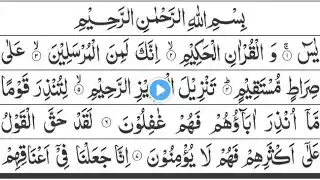 بِسْمِ اللهِ الرَّحْمٰنِ الرَّحِيْمِ
يٰسٓ ۝١ وَ الْقُرْاٰنِ الْحَكِيْمِ ۝٢ اِنَّكَ لَمِنَ الْمُرْسَلِيْنَ ۝٣ عَلٰى
صِرَاطٍ مُّسْتَقِيْمٍ ۝٤ تَنْزِيْلَ الْعَزِيْزِ الرَّحِيْمِ ۝٥ لِتُنْذِرَ قَوْمًا
مَّاۤ اُنْذِرَ اٰبَآؤُهُمْ فَهُمْ غٰفِلُوْنَ ۝٦ لَقَدْ حَقَّ الْقَوْلُ
عَلٰۤى اَكْثَرِهِمْ فَهُمْ لَا يُؤْمِنُوْنَ ۝٧ اِنَّا جَعَلْنَا فِيْۤ اَعْنَاقِهِمْ